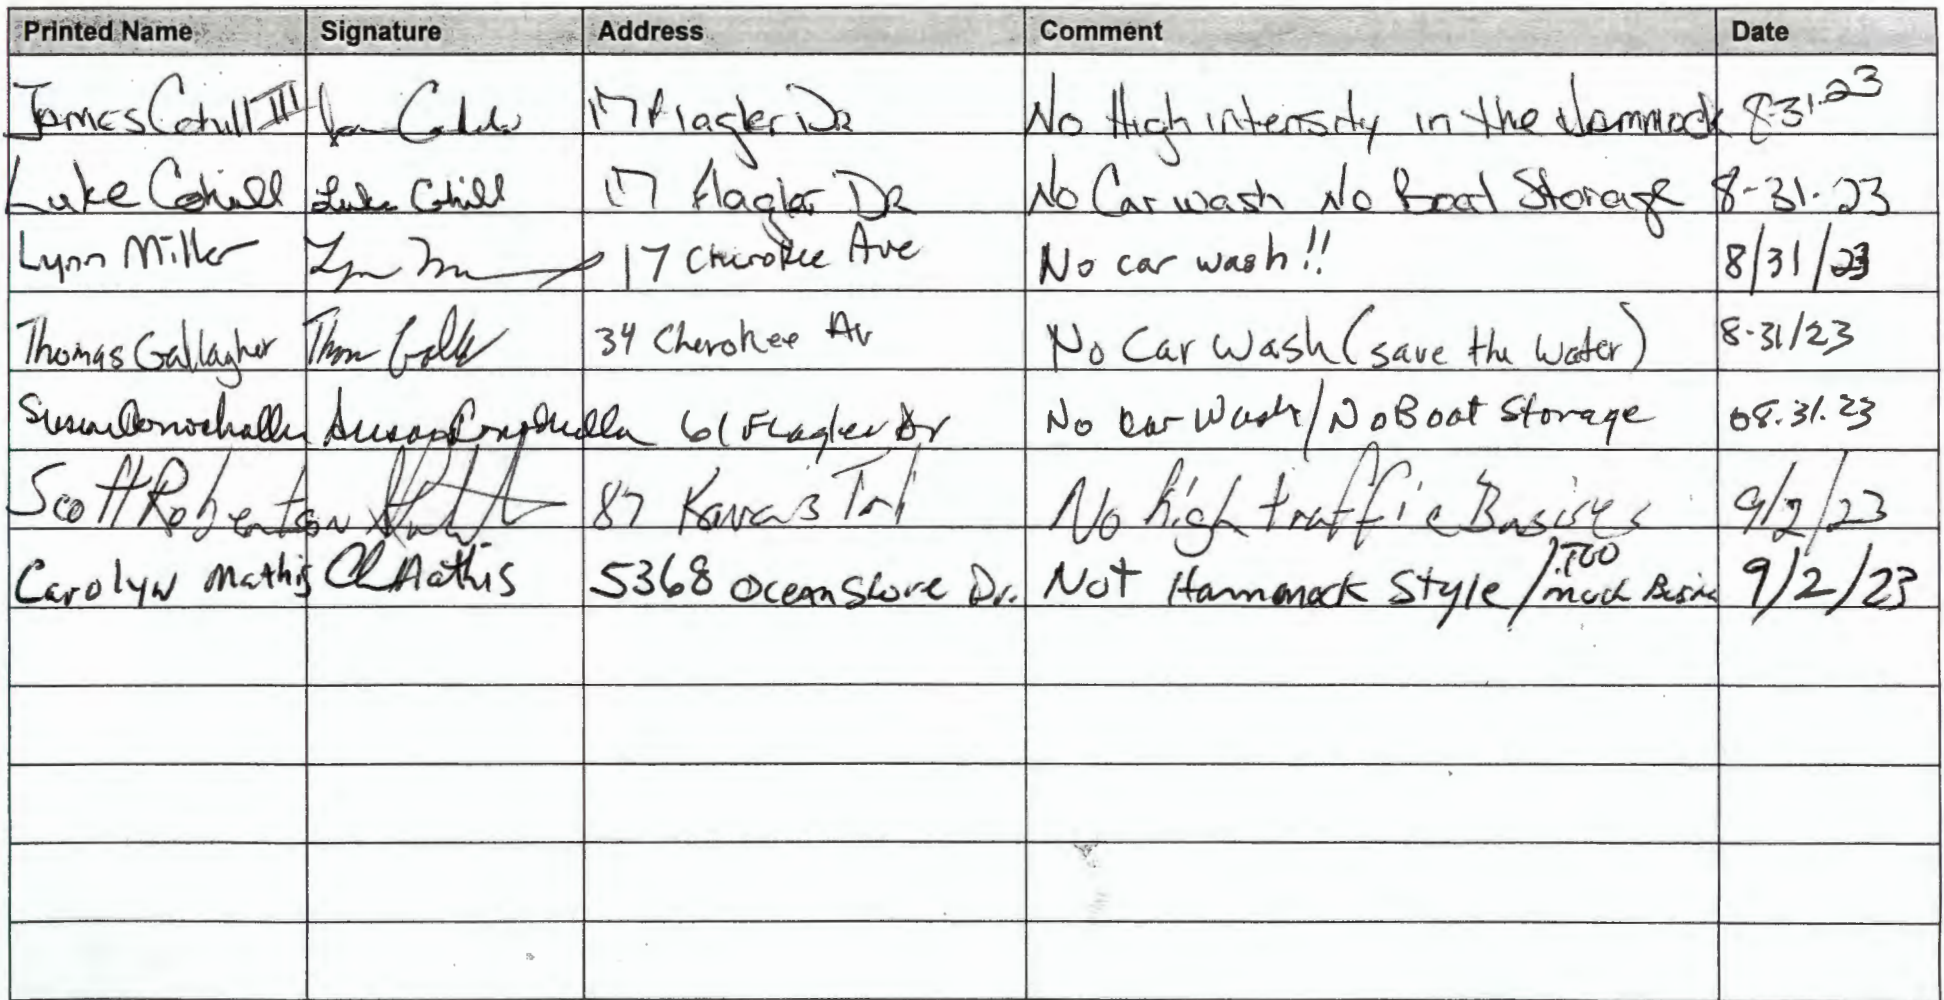 Printed Name Signature Address Comment Date
James Cohill III 17 Flagler DR No High intensity in the Hammock 8-31-23
Luke Cohill Luke Cohill 17 Flagler DR No Car wash No Boat Storage 8-31-23
Lynn Miller 17 Cherokee Ave No car wash!! 8/31/23
Thomas Gallagher 34 Cherokee Av No Car Wash (save the water) 8-31/23
Susan Susan 61 Flagler Dr No car Wash/No Boat Storage 08.31.23
Scott Robertson 87 No high traffic 9/2/23
Carolyn Mathis C Mathis 5368 Ocean Shore Dr. Not Hammock Style/Too much 9/2/23